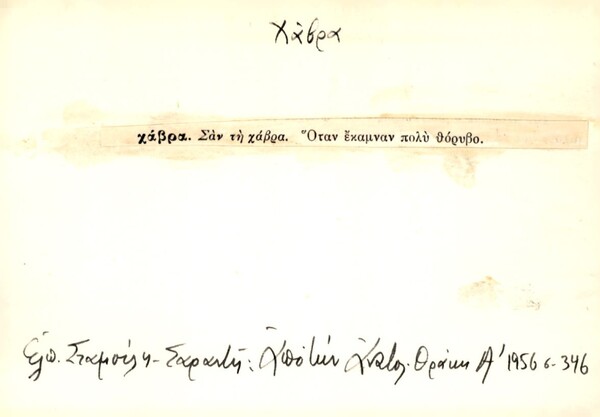 Χάβρα
χάβρα. Σὰν τὴ χάβρα. Ὅταν ἔκαμναν πολὺ θόρυβο.
Ἐλπ. Σταμούλη - Σαραντῆ: Ἀπὸ τὴν Ἀνατολ. Θράκη Α' 1956 σ. 346